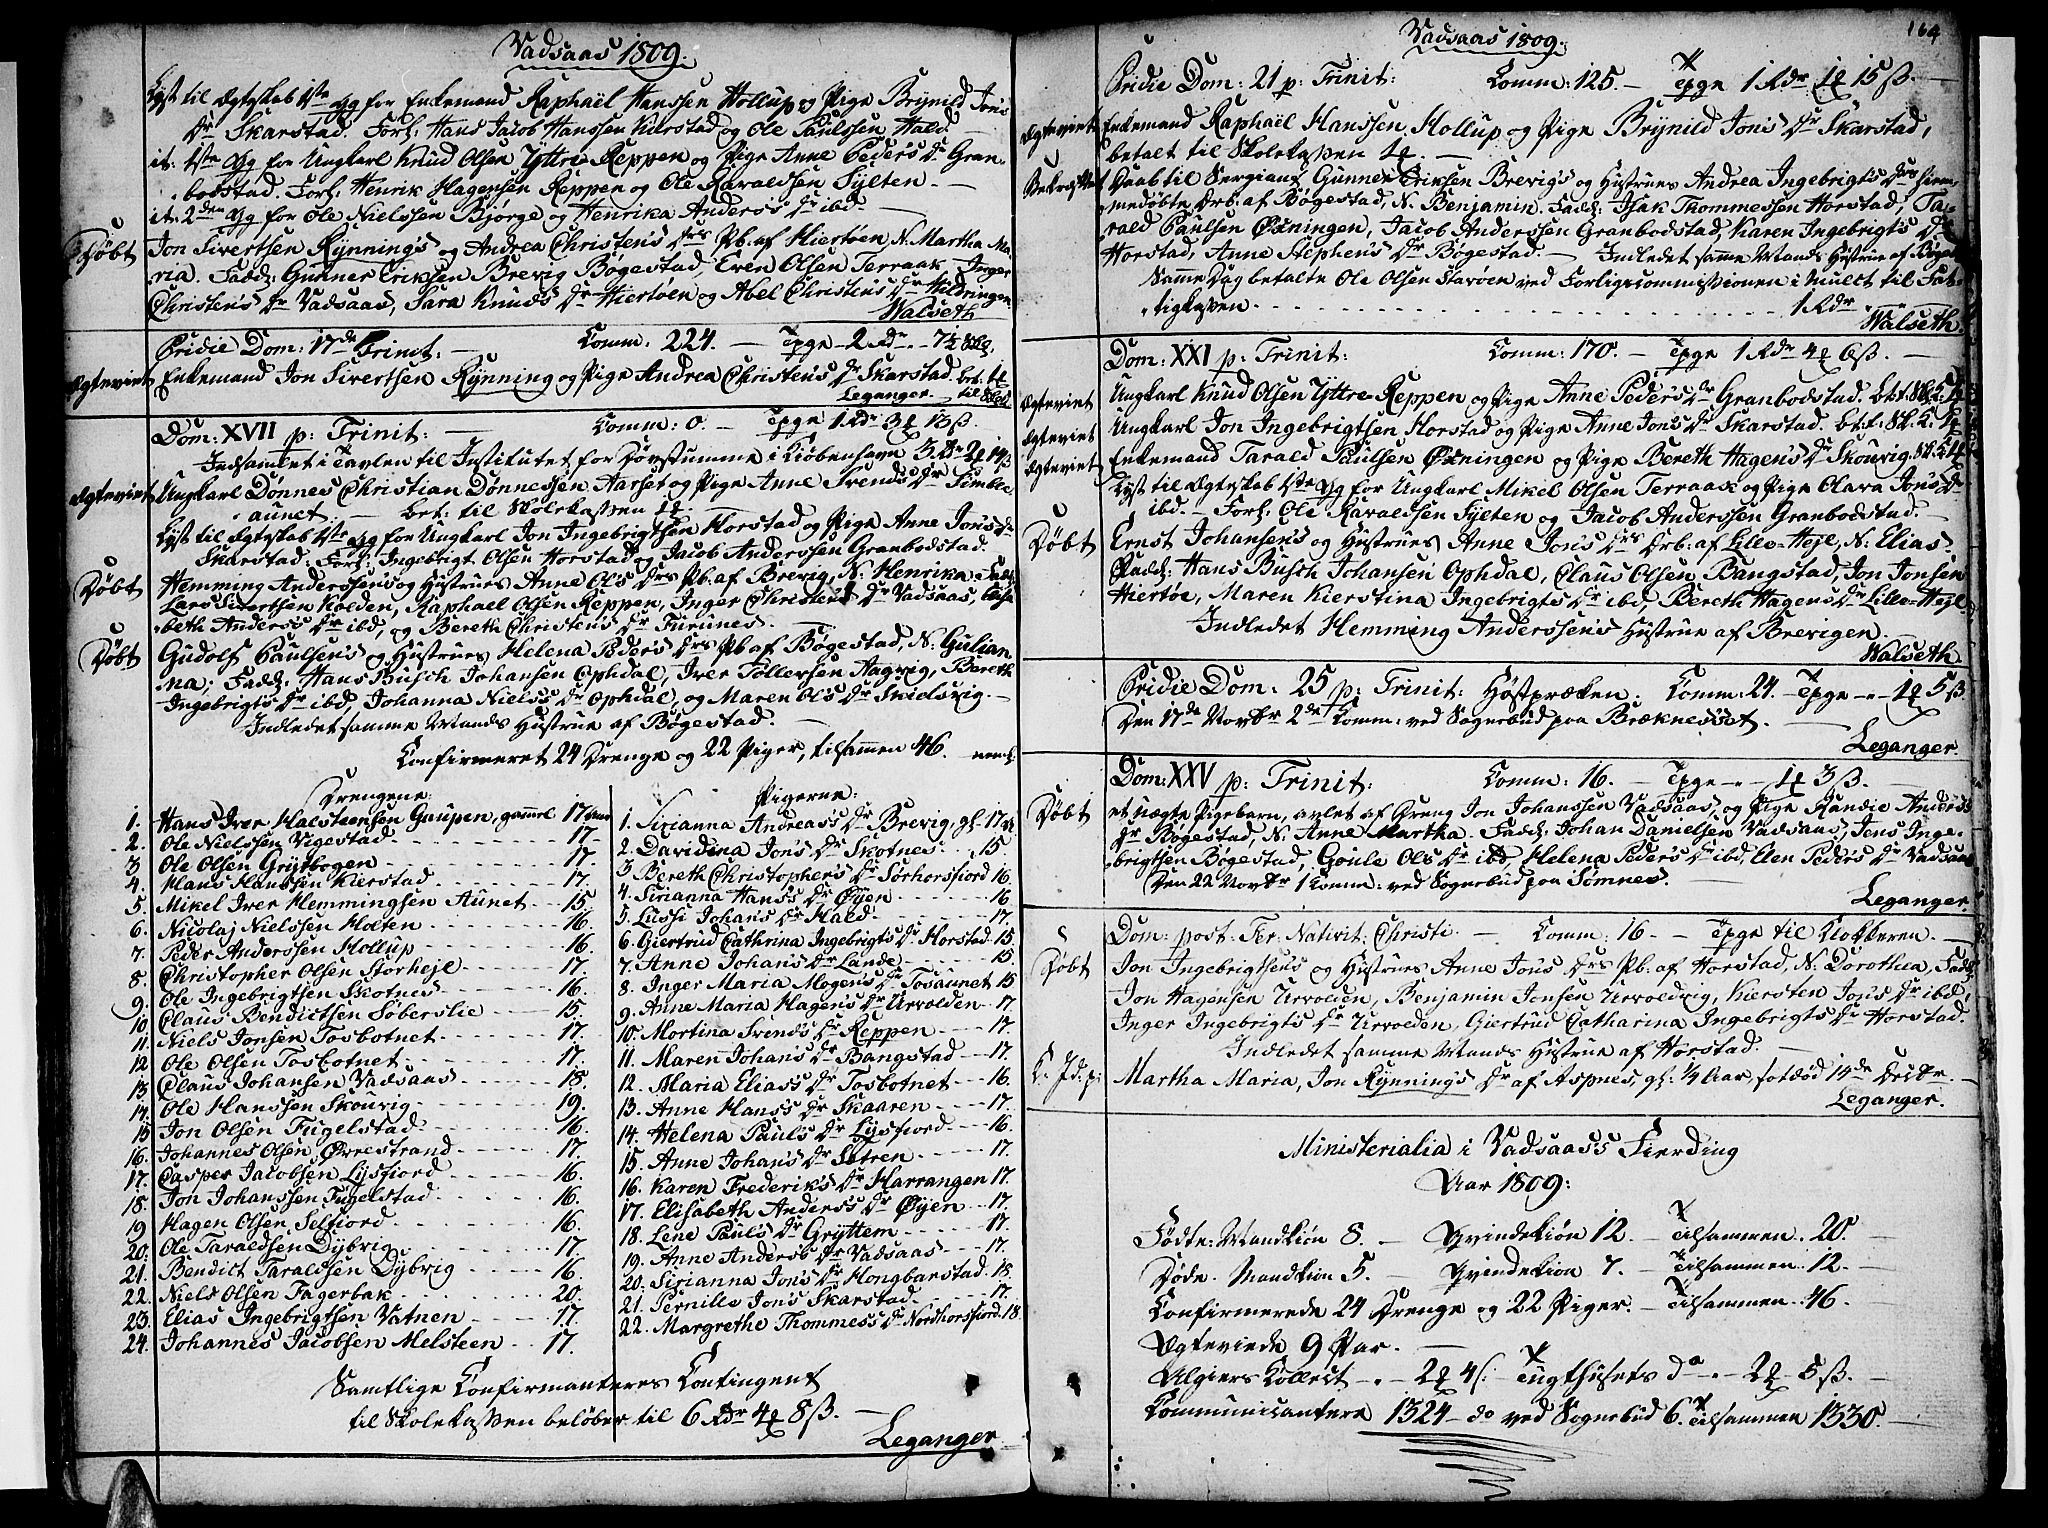 Vadsaas 1809.
Lyst til Ægteskab 1ste Gg for Enkemand Raphaël Hanssen Hollup og Pige Brynild Jons
Dr Skarstad. Forl: Hans Jacob Hanssen Kierstad og Ole Paulssen Hald.
it: 1ste Gg for Ungkarl Knud Olsen Yttre Reppen og Pige Anne Peders Dr Gran-
bodstad. Forl: Henrik Hagensen Reppen og Ole Haraldsen Sylten.
it: 2den Gg for Ole Nielssen Bjørge og Henrika Anders's Dr ibd.
Døbt Jon Sivertsen Rynnings og Andrea Christens Drs Pb. af Hiertøen, N. Martha Ma-
ria. Fadd: Gunner Eriksen Brevig Bøgestad, Even Olsen Terraak, Inger
Christens Dr Vadsaas, Sara Knuds Dr Hiertøen og Abel Christens Dr Hildringen.
Walseth
Pridie Dom: 17de Trinit: Comm: 224. Tpge 2 Rdr 7½ Skl.
Ægteviet Enkemand Jon Sivertsen Rynning og Pige Andrea Christens Dr Skarstad. bet.
Leganger.
Dom: XVII p: Trinit: Comm: 0. Tpge 1 Rdr 3 13 ß.
Indsamlet i Tavlen til Institutet for Døvstumme i Kiøbenhavn 3 Rdr 2 14 ß
Ægteviet Ungkarl Dønnes Christian Dønnessen Aarset og Pige Anne Svends Dr Simble
aunet. Bet: til Skolekassen
Lyst til Ægteskab 1ste Gg for Ungkarl Jon Ingebrigtsen Horstad og Pige Anne Jons Dr
Skarstad: Forl: Ingebrigt Olsen Horstad og Jacob Anderssen Granbodstad.
Døbt Hemming Anderssens og Hustrues Anne Ols Drs Pb. af Brevig, N: Henrika. Fadd:
Lars Sivertsen Holden, Raphael Olsen Reppen, Inger Christens Dr Vadsaas, Elisa
beth Anders's Dr ibd, og Bereth Christens Dr Furunes.
Døbt Gudolf Paulsens og Hustrues Helena Peders Drs Pb af Bøgestad, N: Gulian
na, Fadd: Hans Busch Johansen Ophdal, Iver Tollersen Aagvig, Bereth
Ingebrigts Dr ibd, Johanna Niels's Dr Ophdal, og Maren Ols Dr Skielsvig.
Indledet samme Mands Hustrue af Bøgestad.
Confirmeret 24 Drenge og 22 Piger, tilsammen 46. neml:
Drengene:
1. Hans Iver Halsteensen Gaupen, gammel 17 Aar
2. Ole Nielssen Vigestad 17
3 Ole Olsen Grytbogen 17
4. Hans Hanssen Kierstad 17.
5. Mikel Iver Hemmingsen Aunet 15
6. Nicolaj Nielssen Holten 16.
7. Peder Anderssen Hollup 16.
8. Christopher Olsen Storhejl 17.
9. Ole Ingebrigtsen Skotnes 16.
10. Claus Bendictsen Søberslie 15.
11. Niels Jonsen Tosbotnet 17.
12 Ole Olsen Tosbotnet 17.
13. Claus Johansen Vadsaas 18.
14. Ole Hanssen Skouvig 19.
15 Jon Olsen Fugelstad 16.
16. Johannes Olsen Ørrestrand 17.
17. Casper Jacobsen Lysfiord 16.
18. Jon Johanssen Fugelstad 16.
19 Hagen Olsen Selfiord 16.
20. Ole Taraldsen Dybvig 17.
21. Bendict Taraldsen Dybvig 16.
22. Niels Olsen Fagerbak 20.
23. Elias Ingebrigtsen Vatnen 17.
24. Johannes Jacobsen Melsteen 17.
Pigerne:
1. Sirianna Andreas's Dr Brevig, gl. 17
2. Davidina Jons Dr Skotnes 15.
3 Bereth Christophers Dr Sørhorsfiord 16
4. Sirianna Hans's Dr Øyen 16
5. Lussi Johans Dr Hald 17.
6. Giertrud Cathrina Ingebrigts Dr Horstad 15.
7. Anne Johans Dr Lande 15.
8. Inger Maria Mogens Dr Tosaunet 15
9. Anne Maria Hagens Dr Urvolden 17.
10. Mortina Svends Dr Reppen 17.
11. Maren Johans Dr Bangstad 17.
12. Maria Elias's Dr Tosbotnet 16.
13. Anne Hans's Dr Skaaren 17.
14. Helena Pauls Dr Lysfiord 16.
15. Anne Johans Dr Setren 17.
16. Karen Frederiks Dr Harrangen 17.
17. Elisabeth Anders's Dr Øyen 17.
18. Lene Pauls Dr Gryttem 17.
19. Anne Anders's Dr Vadsaas 17.
20. Sirianna Jons Dr Hongbarstad 18.
21. Pernille Jons Skarstad 17.
22. Margrethe Thommes's Dr Nordhorsfiord 18
Samtlige Confirmanteres Contingent
til Skolekassen beløber til 6 Rdr 4 8 ß.
Leganger
Vadsaas 1809.
164
Pridie Dom: 21 p: Trinit: Comm: 125. Tpge 1 Rdr 1 15 ß.
Ægteviet Enkemand Raphaël Hanssen Hollup og Pige Brynild Jons Dr Skarstad,
betalt til Skolekassen
Bekræftet Daab til Sergiant Gunner Eriksen Brevigs og Hustrues Andrea Ingebrigts Drs hiem-
medøbte Drb: af Bøgestad, N. Benjamin. Fadd: Isak Thommessen Horstad, Ta-
rald Paulsen Øxningen, Jacob Anderssen Granbodstad, Karen Ingebrigts Dr
Horstad, Anne Stephens Dr Bøgestad. Indledet samme Mands Hustrue af Bøgest
Samme Dag betalte Ole Olsen Starøen ved Forligscommissionen i Mulct til Fat-
tigkassen 1 Rdr
Walseth.
Dom: XXI p: Trinit: Comm: 170. Tpge 1 Rdr 4 6 ß.
Ægteviet Ungkarl Knud Olsen Yttre-Reppen og Pige Anne Peders Dr Granbodstad. bet: Sk: K:
Ægteviet Ungkarl Jon Ingebrigtsen Horstad og Pige Anne Jons Dr Skarstad. bet: t: Sk. K.
Ægteviet Enkemand Tarald Paulsen Øxningen og Pige Bereth Hagens Dr Skouvig. Sk. K.
Lyst til Ægteskab 1ste Gg for Ungkarl Mikel Olsen Terraak og Pige Olava Jons Dr
ibd. Forl: Ole Haraldsen Sylten og Jacob Anderssen Granbodstad.
Døbt Ernst Johansens og Hustrues Anne Jons Drs Drb: af Lille-Hejl, N: Elias.
Fadd: Hans Busch Johansen Ophdal, Claus Olsen Bangstad, Jon Jonsen
Hiertøe, Maren Kierstina Ingebrigts Dr ibd, Bereth Hagens Dr Lille-Hejl
Indledet Hemming Anderssens Hustrue af Brevigen
Walseth.
Pridie Dom: 25 p: Trinit: Høstpræken. Comm: 24. Tpge 1 5 ß
Den 17de Novbr 2de Comm: ved Sognebud paa Bræknesset.
Leganger.
Dom: XXV p: Trinit: Comm: 16. Tpge 1 3 ß.
Døbt et uægte Pigebarn, avlet af Dreng Jon Johanssen Vadsaas, og Pige Randie Anders's
Dr Bøgestad, N. Anne Martha. Fadd: Johan Danielsen Vadsaas, Jens Inge-
brigtsen Bøgestad, Goule Ols Dr ibd, Helena Peders Dr ibd, Elen Peders Dr Vadsaas
Den 22 Novbr 1 Comm: ved Sognebud paa Sømnes.
Leganger.
Dom: post: Fer: Nativit: Christi. Comm: 16. Tpge til Klokkeren.
Døbt Jon Ingebrigtsens og Hustrues Anne Jons Drs Pb. af Horstad, N: Dorothea, Fadd:
Jon Hagensen Urvolden, Benjamin Jonsen Urvoldvig, Kiersten Jons Dr ibd,
Inger Ingebrigts Dr Urvolden, Giertrud Catharina Ingebrigts Dr Horstad.
Indledet samme Mands Hustrue af Horstad.
K. Jd: p: Martha Maria, Jon Rynnings Dr af Aspnes, gl: ¼ Aar, sotdød 14de Decbr.
Leganger.
Ministerialia i Vadsaas's Fierding
Aar 1809:
Fødte: Mandkiøn 8. Qvindekiøn 12. Tilsammen 20.
Døde: Mandkiøn 5. Qvindekiøn 7. Tilsammen 12.
Confirmerede 24 Drenge og 22 Piger. Tilsammen 46.
Ægteviede 9 Par.
Algiers Collect 2 4 ß: Tugthusets do 2 5 ß.
Communicantere 1324 do ved Sognebud 6. Tilsammen 1330.